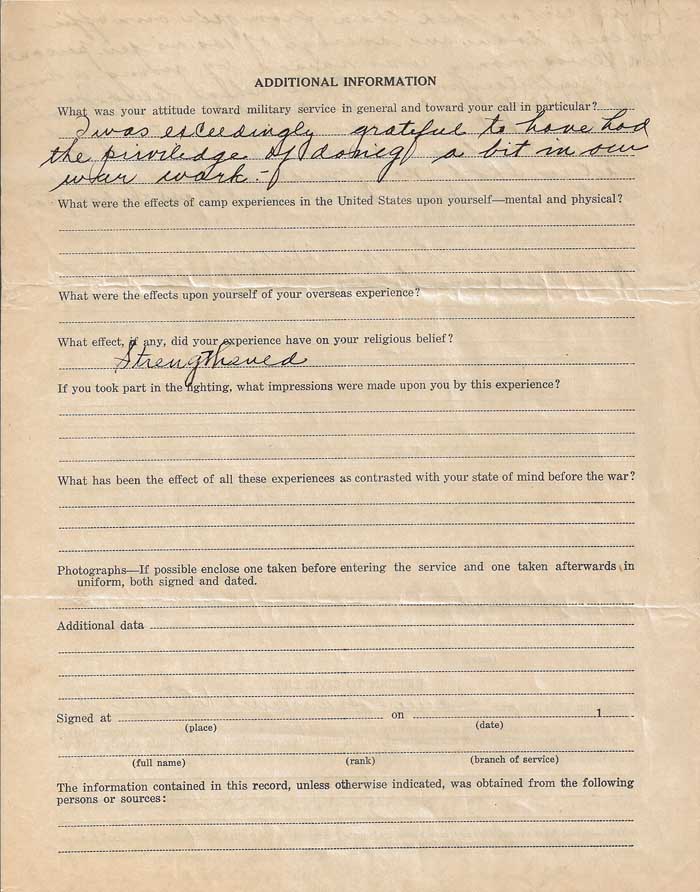 ADDITIONAL INFORMATION
What was your attitude toward military service in general and toward your call in particular?
I was exceedingly grateful to have had
the priviledge of doing a bit in our
war work.-
What were the effects of camp experiences in the United States upon yourself—mental and physical?
What were the effects upon yourself of your overseas experience?
What effect, if any, did your experience have on your religious belief?
Strengthened
If you took part in the fighting, what impressions were made upon you by this experience?
What has been the effect of all these experiences as contrasted with your state of mind before the war?
Photographs—If possible enclose one taken before entering the service and one taken afterwards in
uniform, both signed and dated.
Additional data
Signed at on 1
(place) (date)
(full name) (rank) (branch of service)
The information contained in this record, unless otherwise indicated, was obtained from the following
persons or sources: